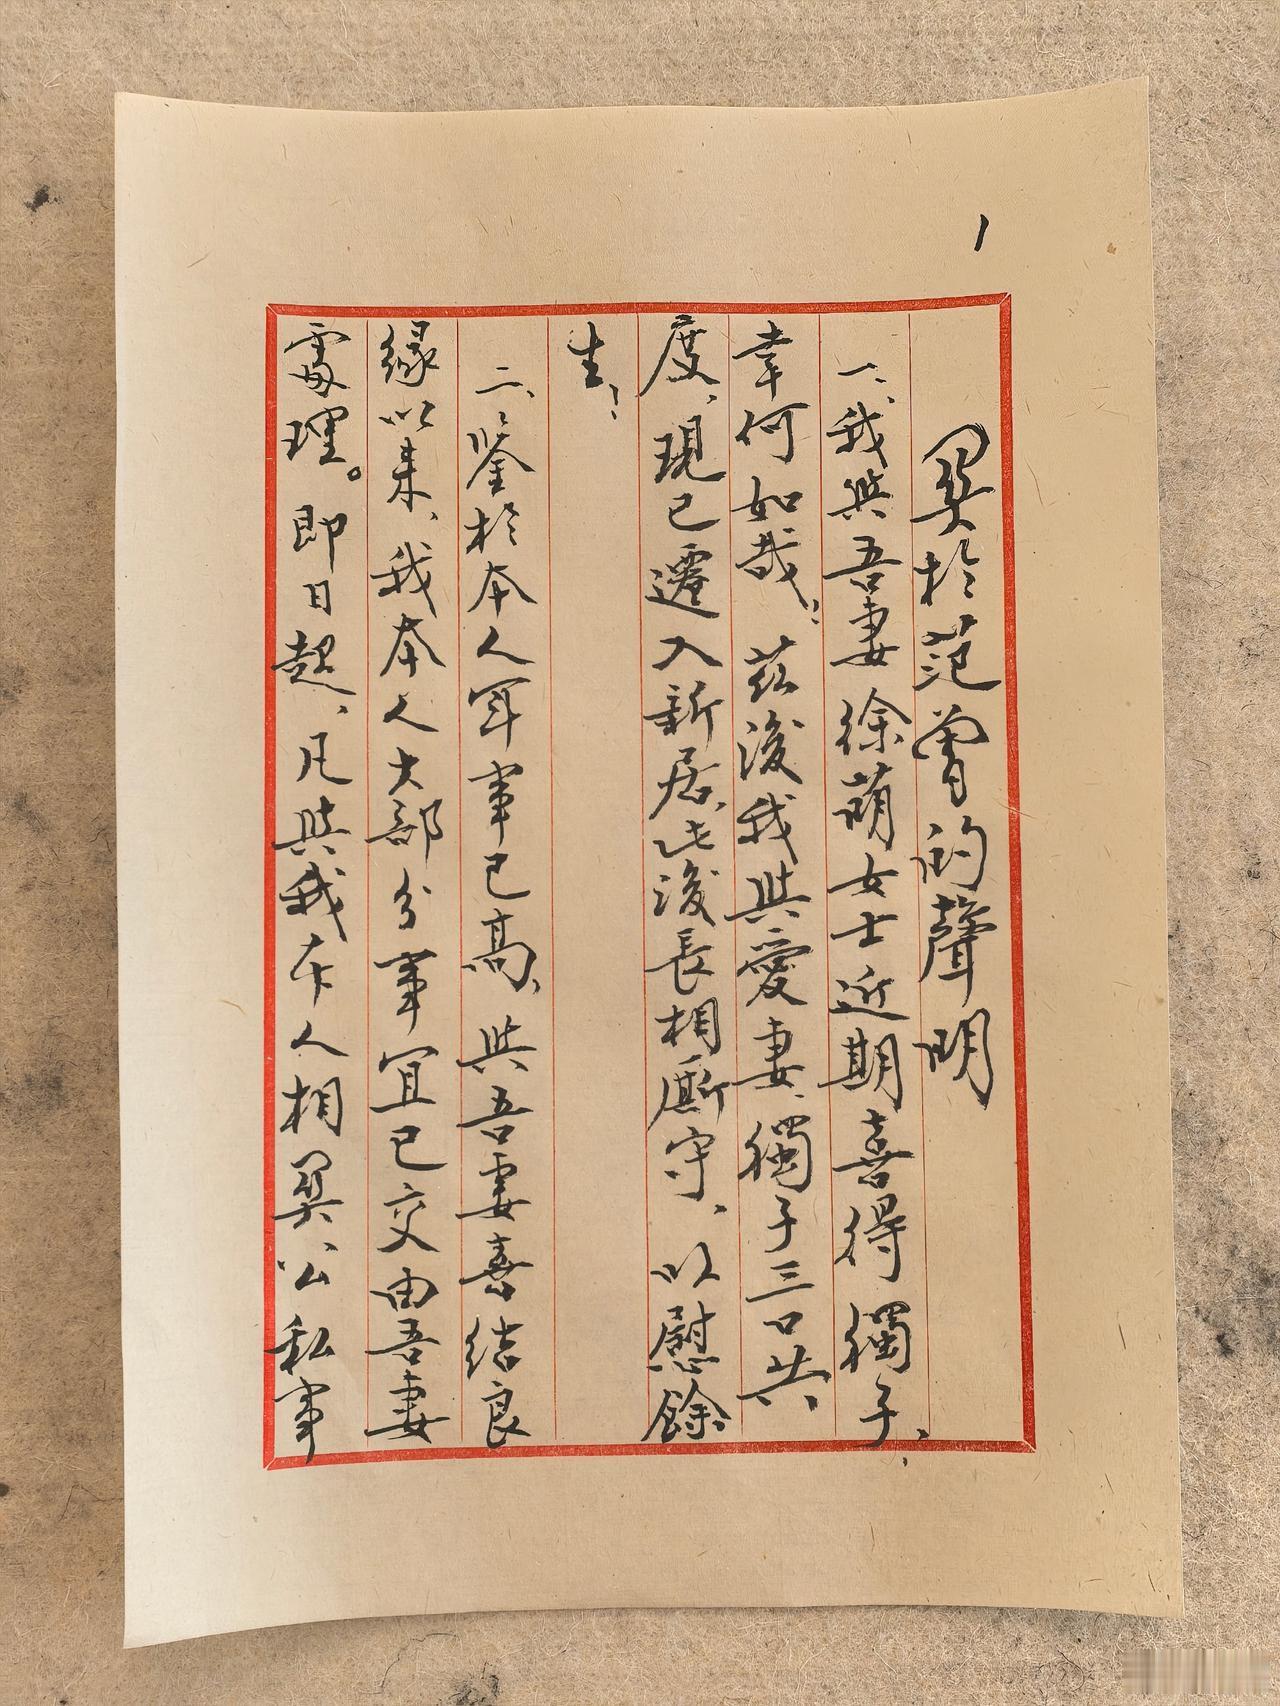 1
關於范曾的聲明
一、我與吾妻徐萌女士近期喜得獨子，
幸何如哉！茲後我與愛妻、獨子三口共
度，現已遷入新居，此後長相廝守，以慰餘
生！
二、鑒於本人年事已高，與吾妻喜結良
緣以來，我本人大部分事宜已交由吾妻
處理。即日起，凡與我本人相關公私事